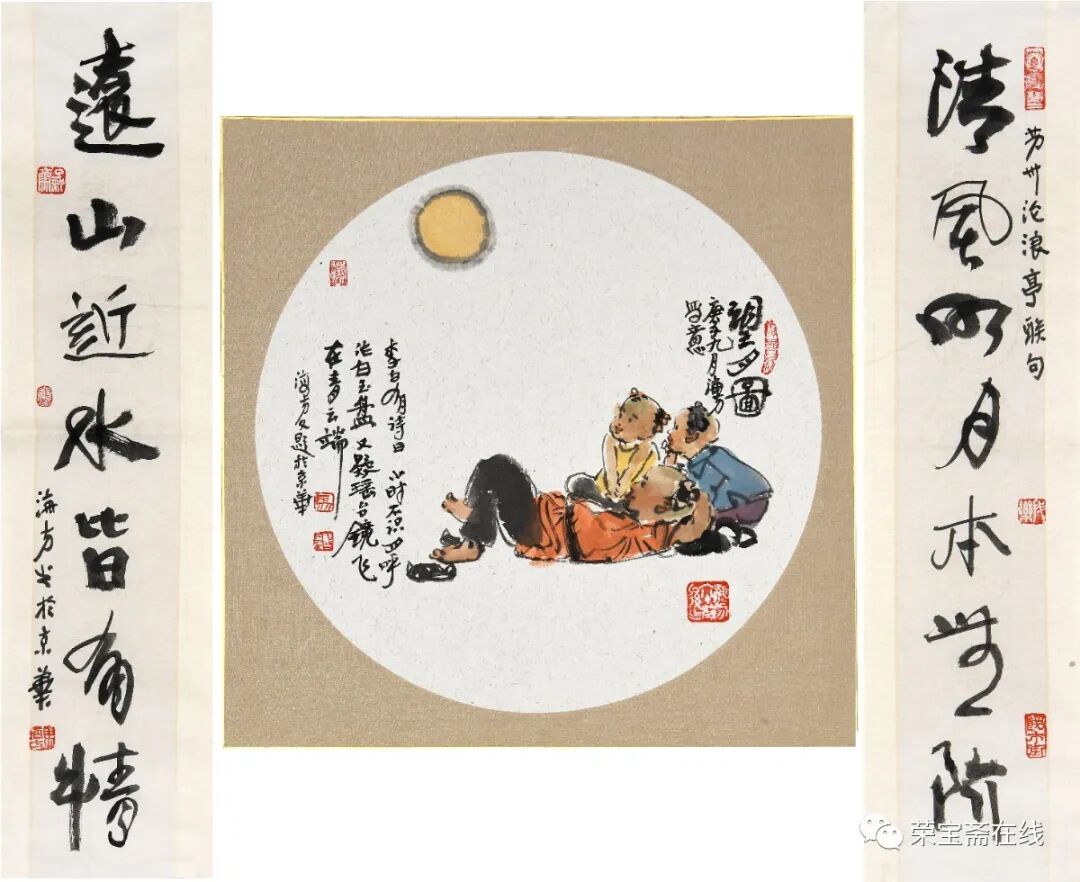 清風明月本無價
苏州沧浪亭联句
望月圖
庚子九月海方
写意
李白有月诗曰 小时不识月呼
作白玉盘又疑瑶台镜飞
在青云端
海方又题於京華
遠山近水皆有情
海方书於京華
荣宝斋在线